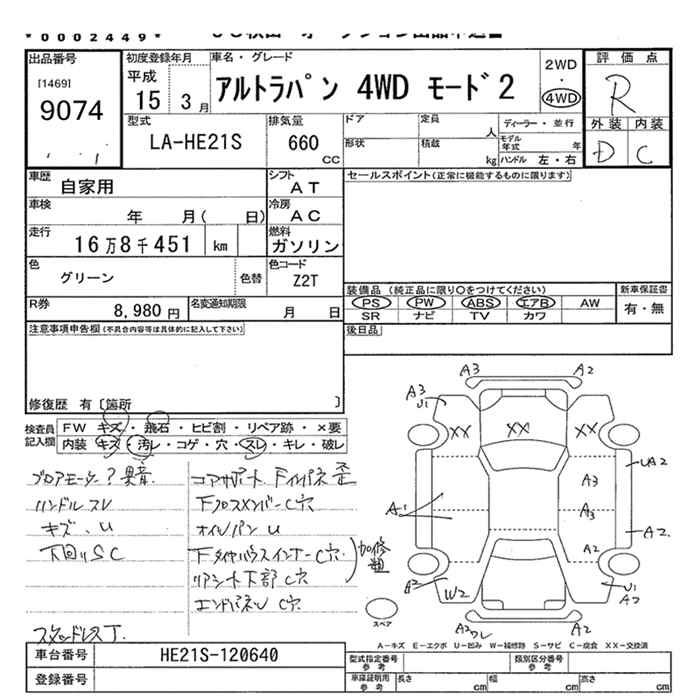 *0002449*
出品番号
[1469]
9074
初度登録年月
平成
15 3月
車名・グレード
アルトラパン 4WD モード2
2WD
・
4WD
評価点
R
外装 内装
D C
型式
LA-HE21S
排気量
660
CC
ドア
定員
人
形状
積載
kg
ディーラー・並行
モデル年式
年
ハンドル 左・右
車歴
自家用
シフト
AT
車検
年 月( 日)
冷房
AC
走行
16万8千451 km
燃料
ガソリン
色
グリーン
色替
色コード
Z2T
R券
8,980円
名変通知期限
月 日
セールスポイント(正常に機能するものに限ります)
装備品 (純正品に限り○をつけてください)
PS PW ABS エアB AW
SR ナビ TV カワ
新車保証書
有・無
後日品
注意事項申告欄(不具合内容等は具体的に記入して下さい)
修復歴 有〔箇所 〕
検査員記入欄
FW キズ・飛石・ヒビ割・リペア跡・×要
内装 キズ・汚レ・コゲ・穴・スレ・キレ・破レ
ブロアモーター?異音
ハンドルスレ
キズ、U
下回りSC
スタッドレスT.
コアサポート Fインパネ歪
FクロスメンバーC穴
オイルパンU
FタイヤハウスインナーC穴
リアシート下部C穴
エンドパネルC穴
加修
A3 A2
A3
U1
XX XX
A1
A3
A3
A2
UA2
A2
A2
W2
U1
A2
A2
ワレ
スペア
A-キズ E-エクボ U-凹み W-補修跡 S-サビ C-腐食 XX-交換済
車台番号
HE21S-120640
登録番号
型式指定番号
参考
類別区分番号
参考
車庫証明用
参考
長さ
cm
幅
cm
高さ
cm